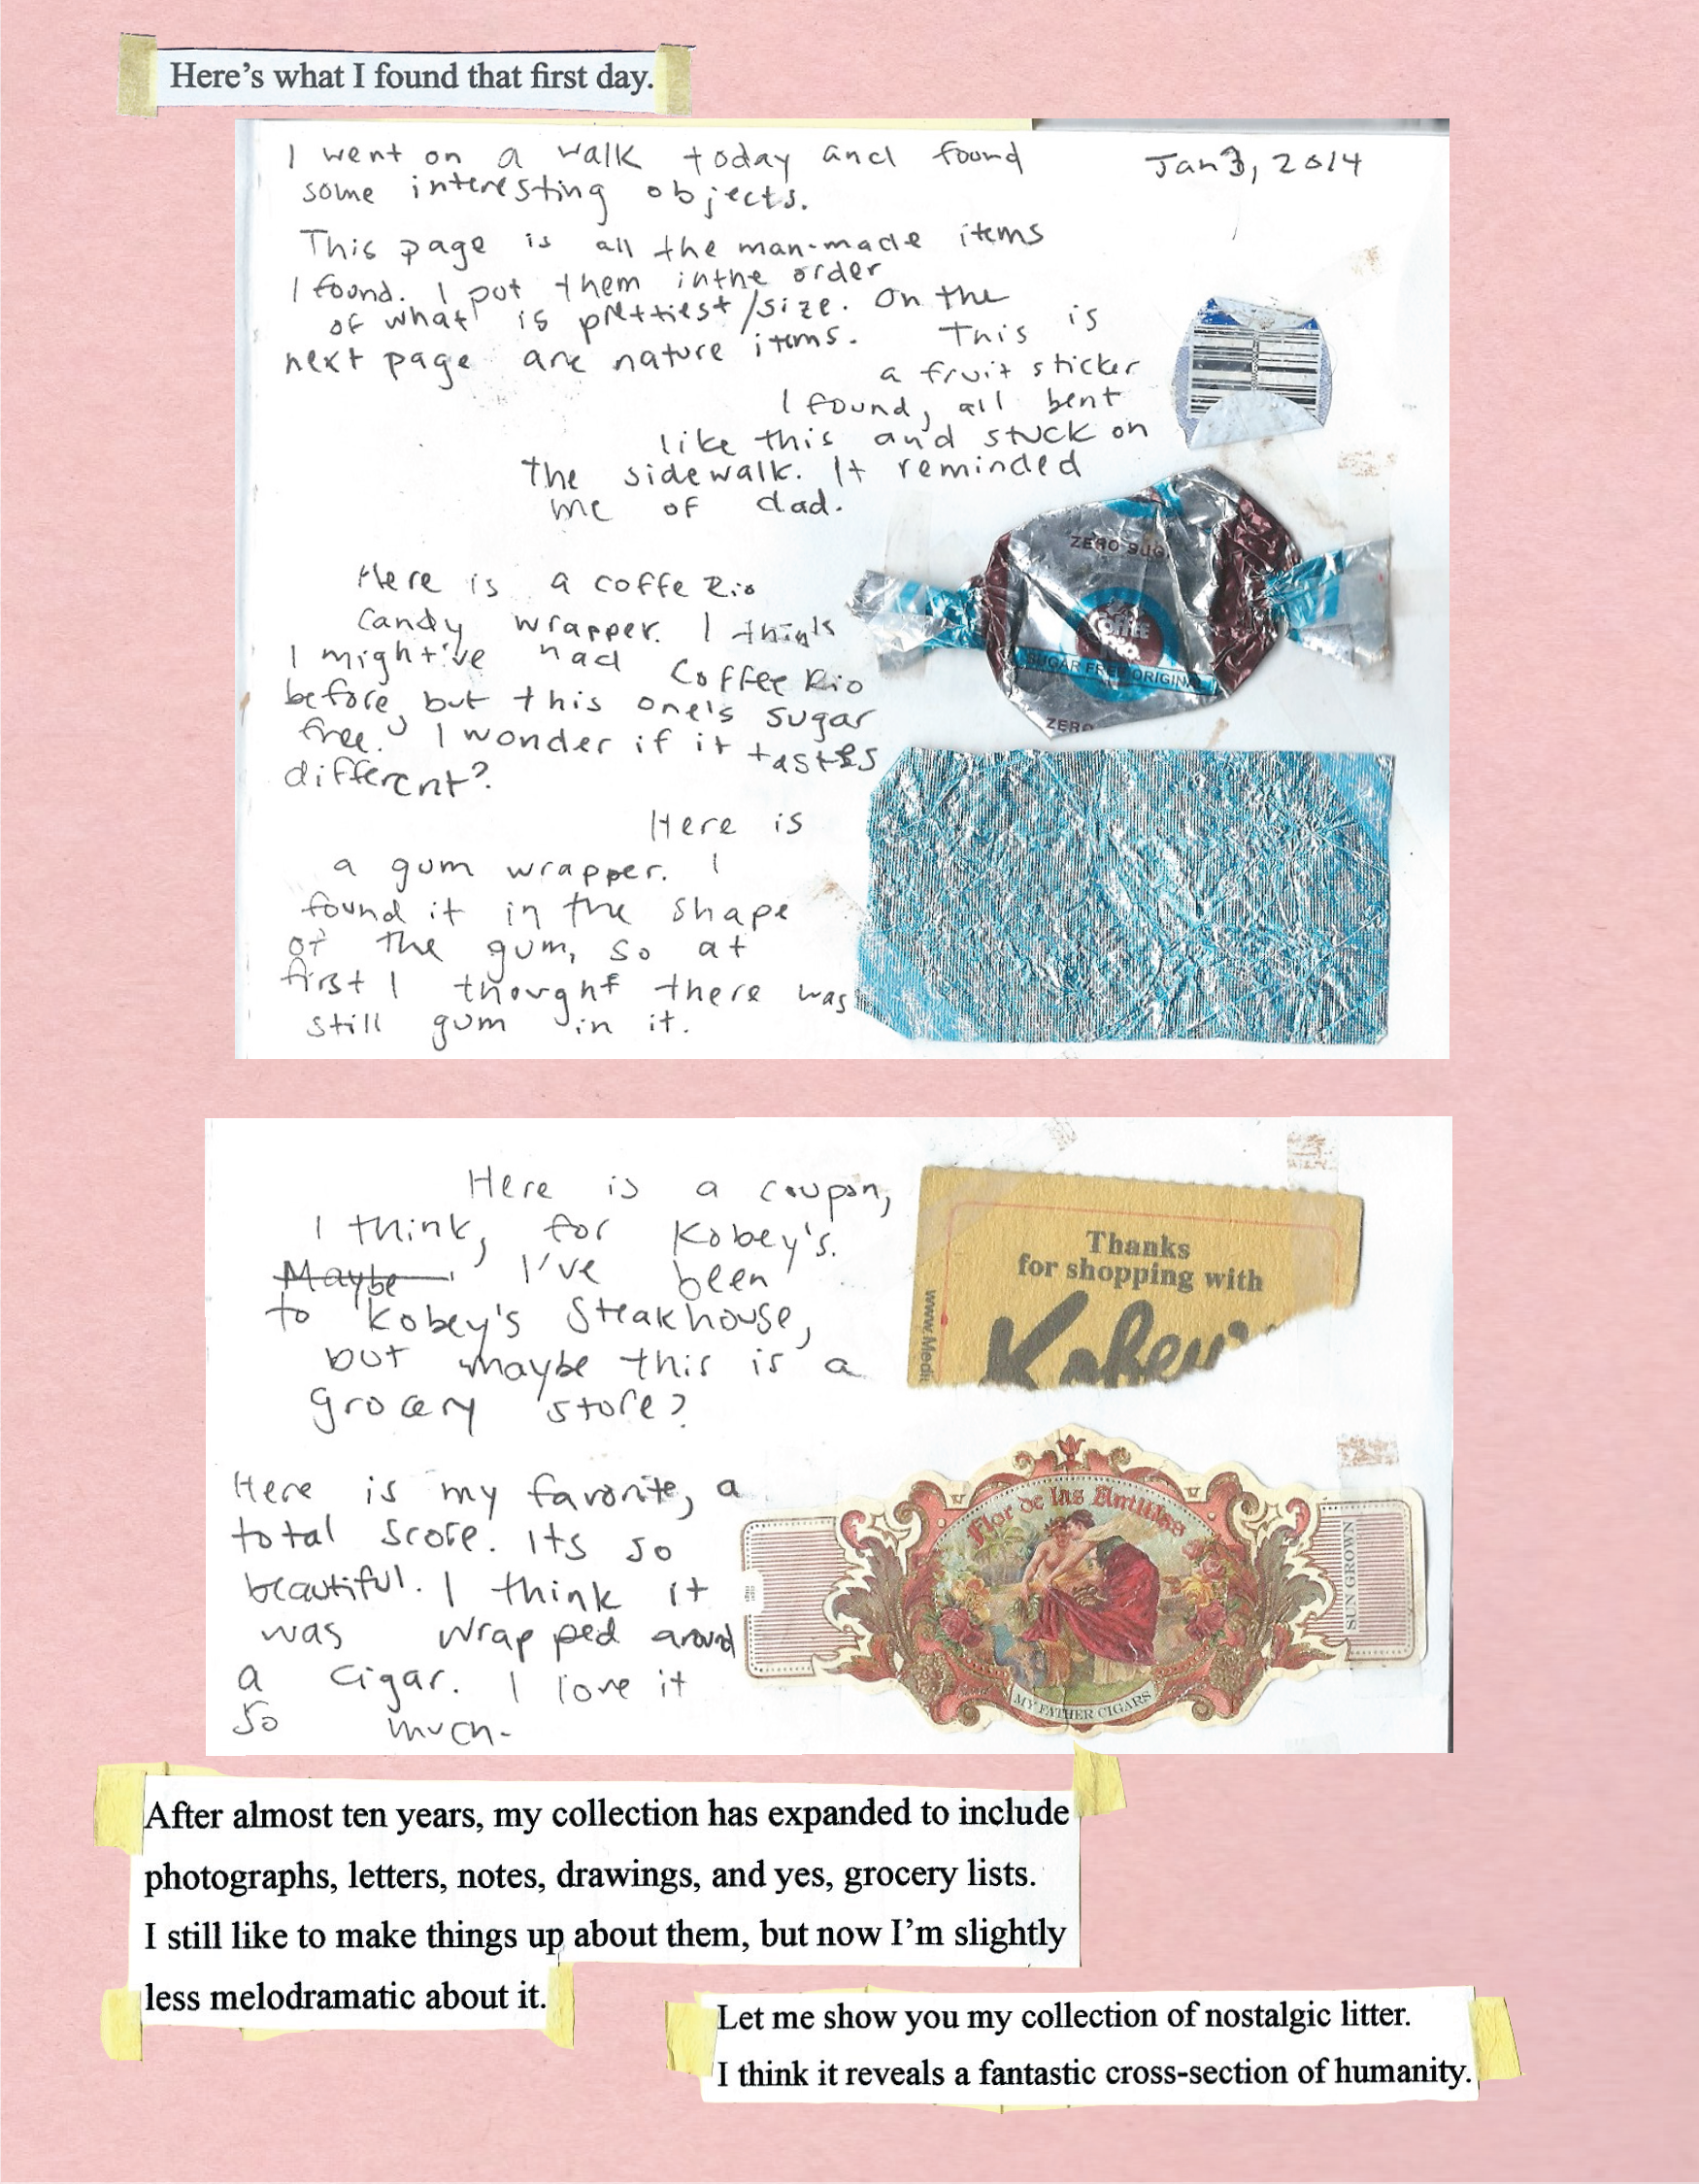 Here's what I found that first day.
I went on a walk today and found
some interesting objects.
Jan 3, 2014
This page is all the man-made items
I found. I put them in the order
of what is prettiest/size. On the
next page are nature items.
This is
a fruit sticker
I found, all bent
like this and stuck on
the sidewalk. It reminded
me of dad.
ZERO SUG
COFFEE
RIO
SUGAR FREE ORIGINAL
ZERO
Here is a coffe Rio
candy wrapper. I think
I might've had Coffee Rio
before, but this one's sugar
free. I wonder if it tastes
different?
Here is
a gum wrapper. I
found it in the shape
of the gum, so at
first I thought there was
still gum in it.
Here is a coupon,
I think, for Kobey's.
Maybe I've been
to Kobey's Steakhouse,
but maybe this is a
grocery store?
Thanks
for shopping with
Kobey's
www.Medi
Here is my favorite, a
total score. Its so
beautiful. I think it
was wrapped around
a cigar. I love it
so much.
Flor de las Antillas
MY FATHER CIGARS
SUN GROWN
After almost ten years, my collection has expanded to include
photographs, letters, notes, drawings, and yes, grocery lists.
I still like to make things up about them, but now I'm slightly
less melodramatic about it.
Let me show you my collection of nostalgic litter.
I think it reveals a fantastic cross-section of humanity.